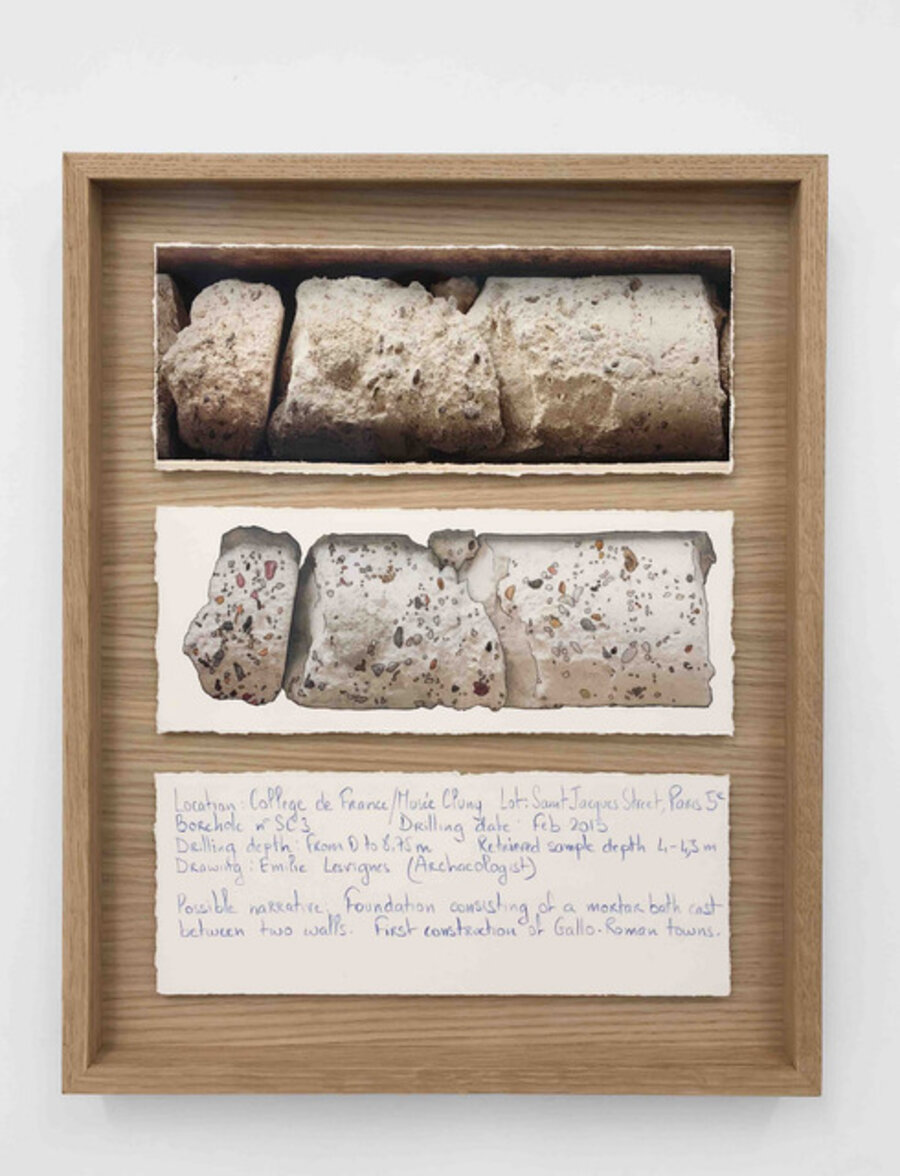 Location: College de France/Musée Cluny Lot: Saint Jacques Street, Paris 5e
Borehole n° SC3 Drilling date: Feb 2015
Drilling depth: From 0 to 8.75m Retrieved sample depth 4-4,3m
Drawing: Emilie Lesvignes (Archaeologist)
Possible narrative: Foundation consisting of a mortar bath cast
between two walls. First construction of Gallo-Roman towns.